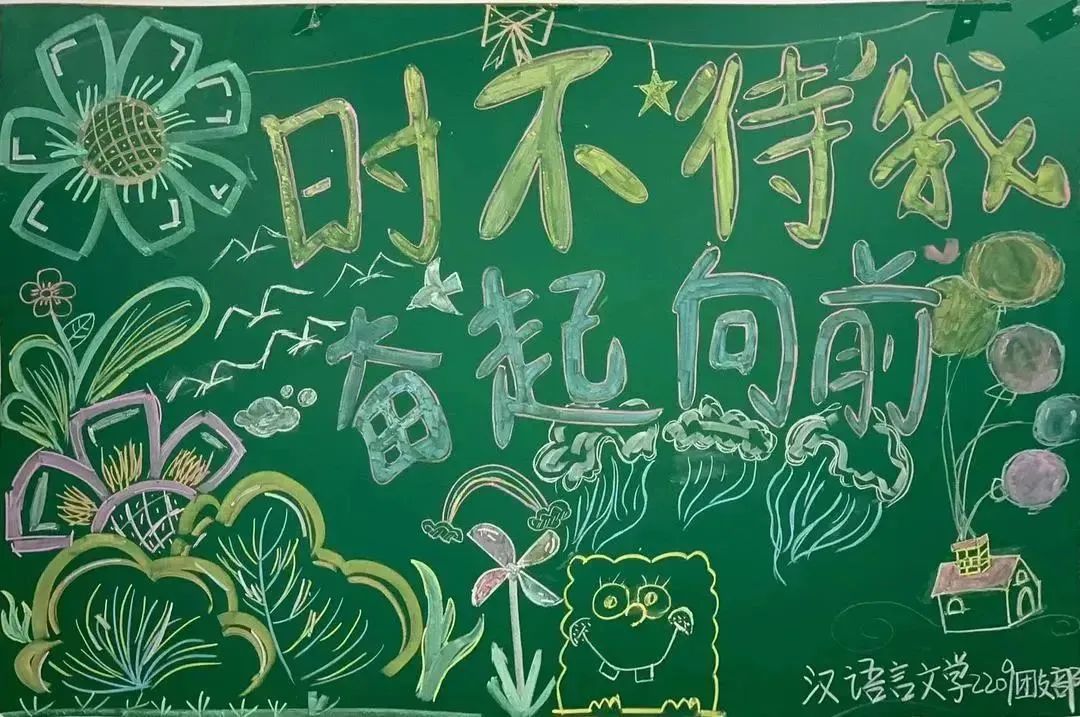 时不待我
奋起向前
汉语言文学2209团支部